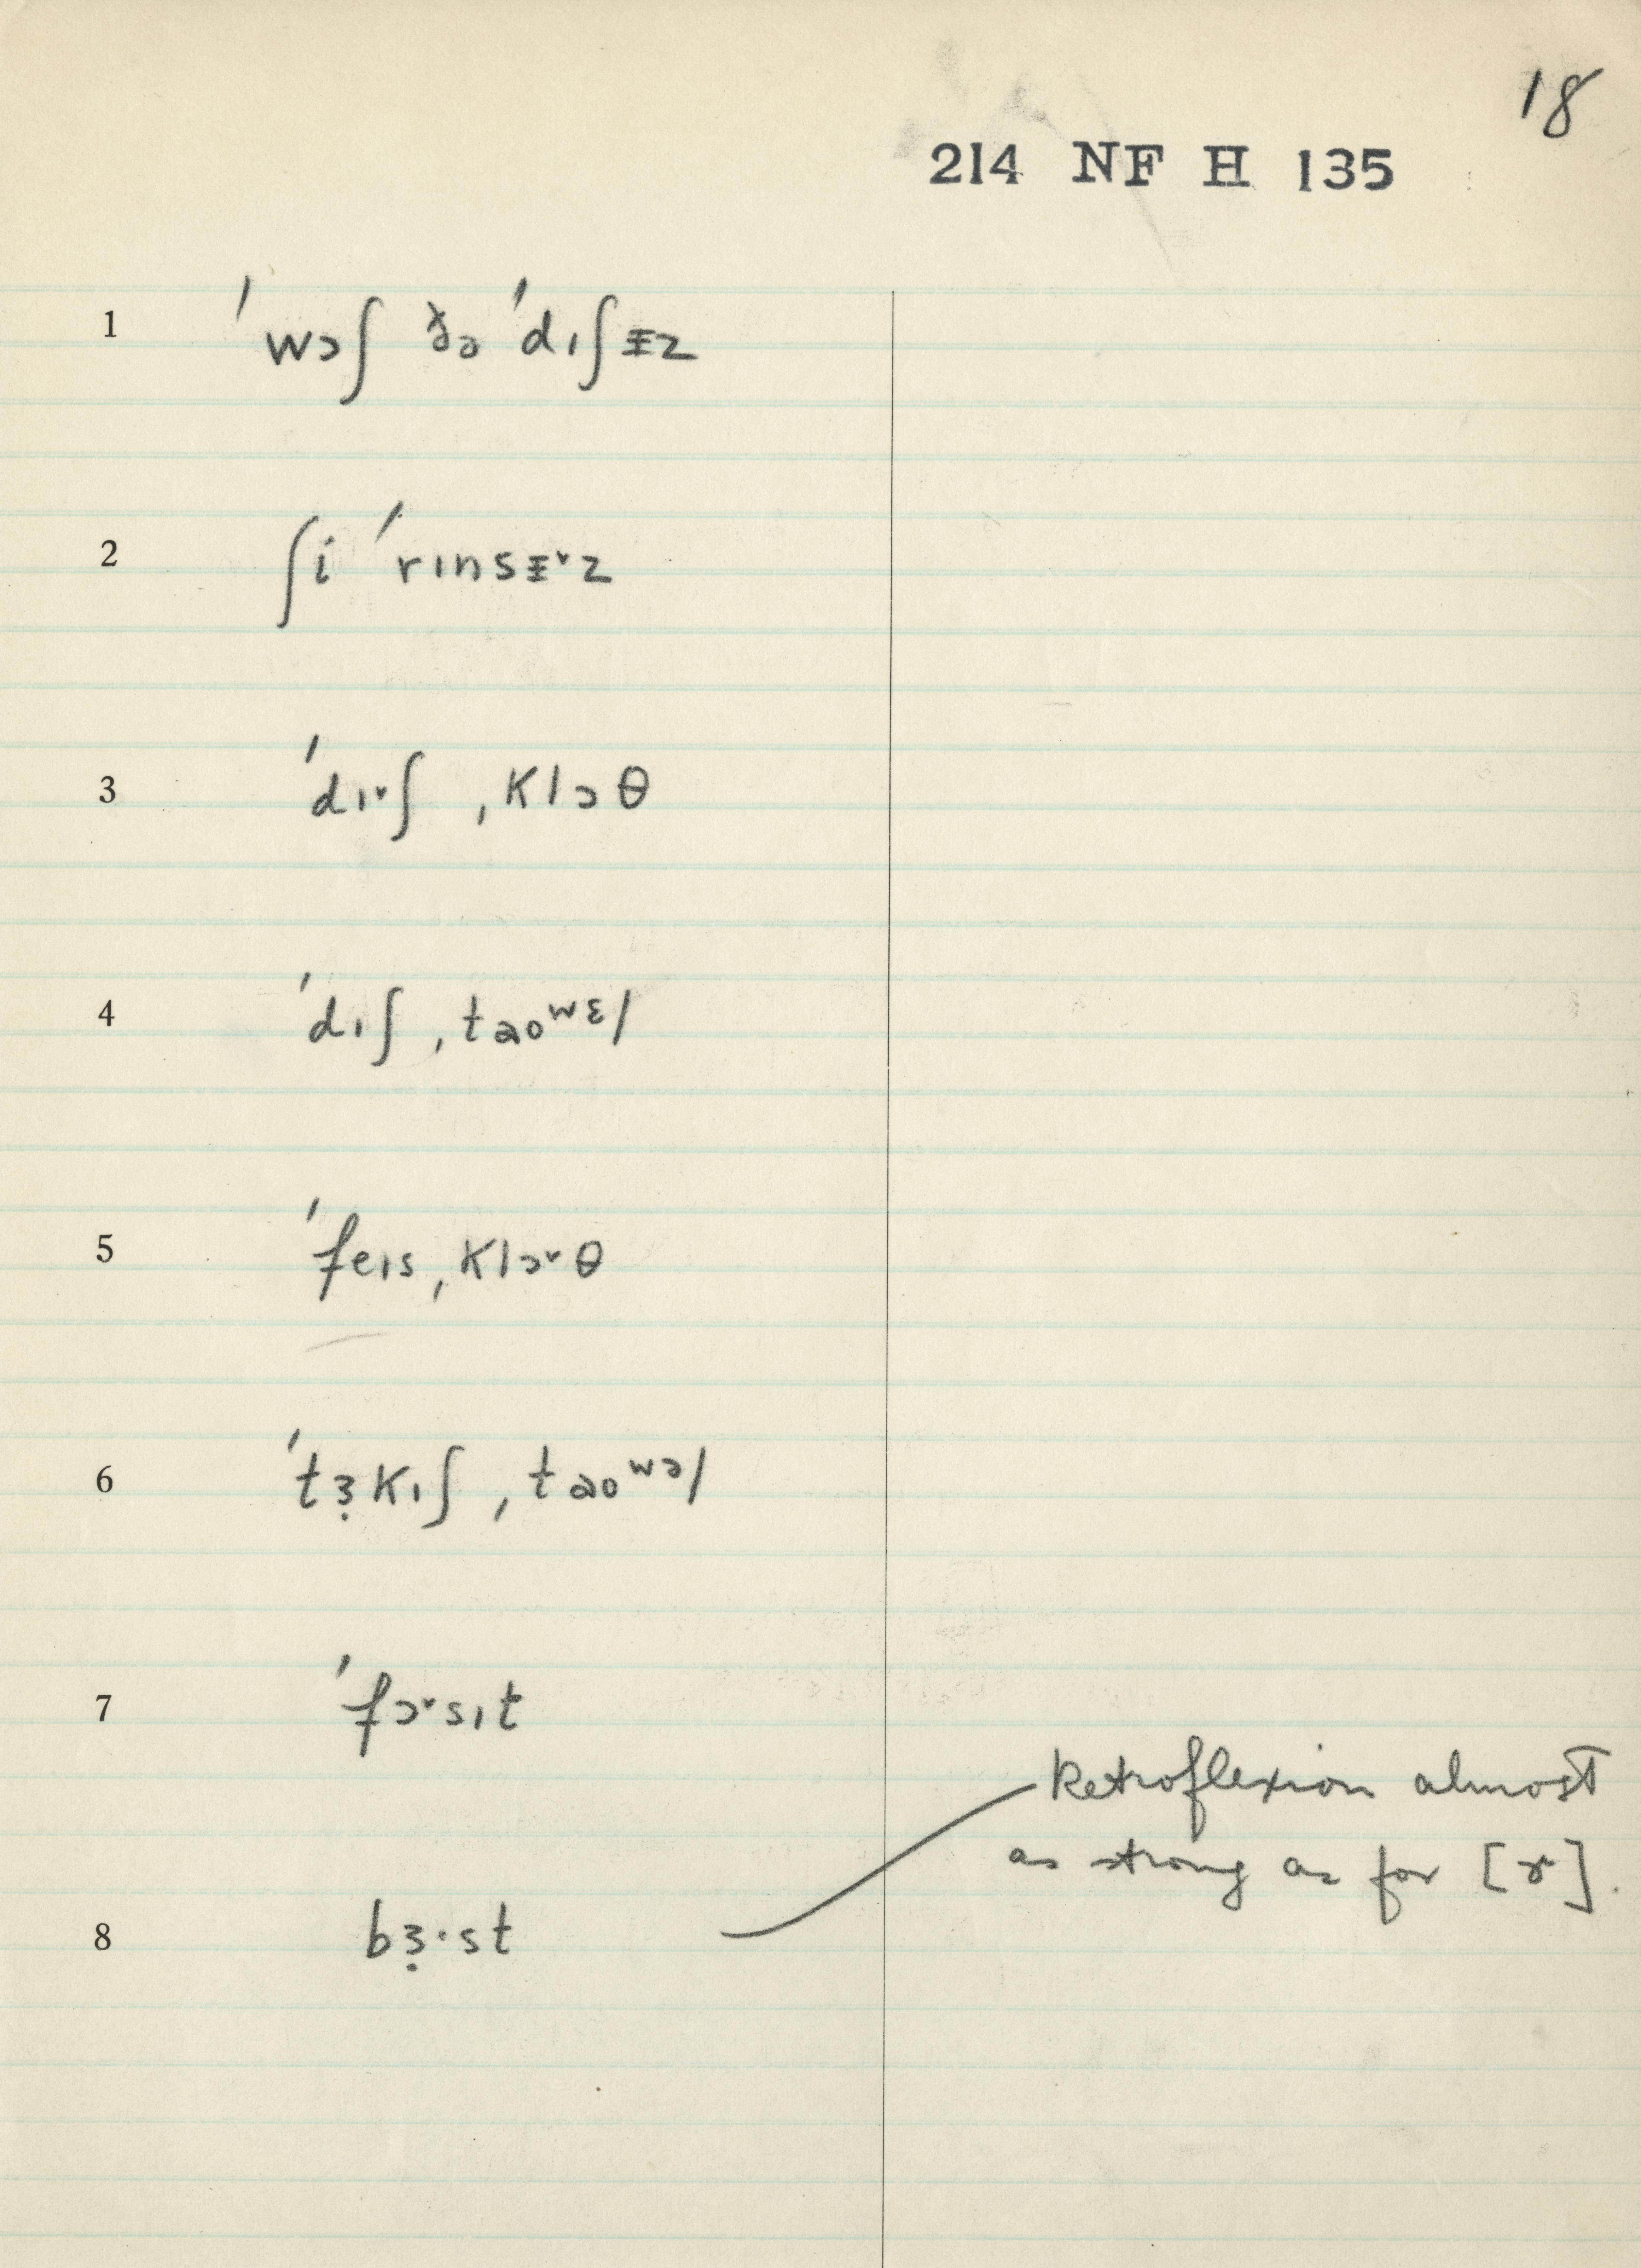 18
214 NF H 135
1 ˈwɔʃ ðə ˈdɪʃᵻz
2 ʃi ˈrɪnsᵻ˅z
3 ˈdɪ˅ʃ ˌklɔθ
4 ˈdɪʃ ˌtaoʷᵋl
5 ˈfeɪsˌklɔ˅θ
6 ˈtɜ̣kɪʃ ˌtaoʷᵊl
7 ˈfɔ˅sɪt
8 bɜ̣·st
Retroflexion almost
as strong as for [ɚ].